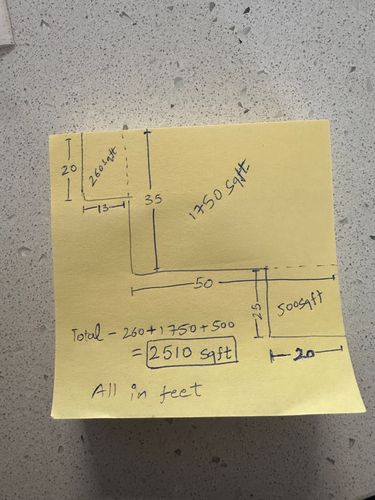 20
260 sqft
13
35
1750 sqft
50
25
500 sqft
20
Total - 260 + 1750 + 500
= 2510 sqft
All in feet